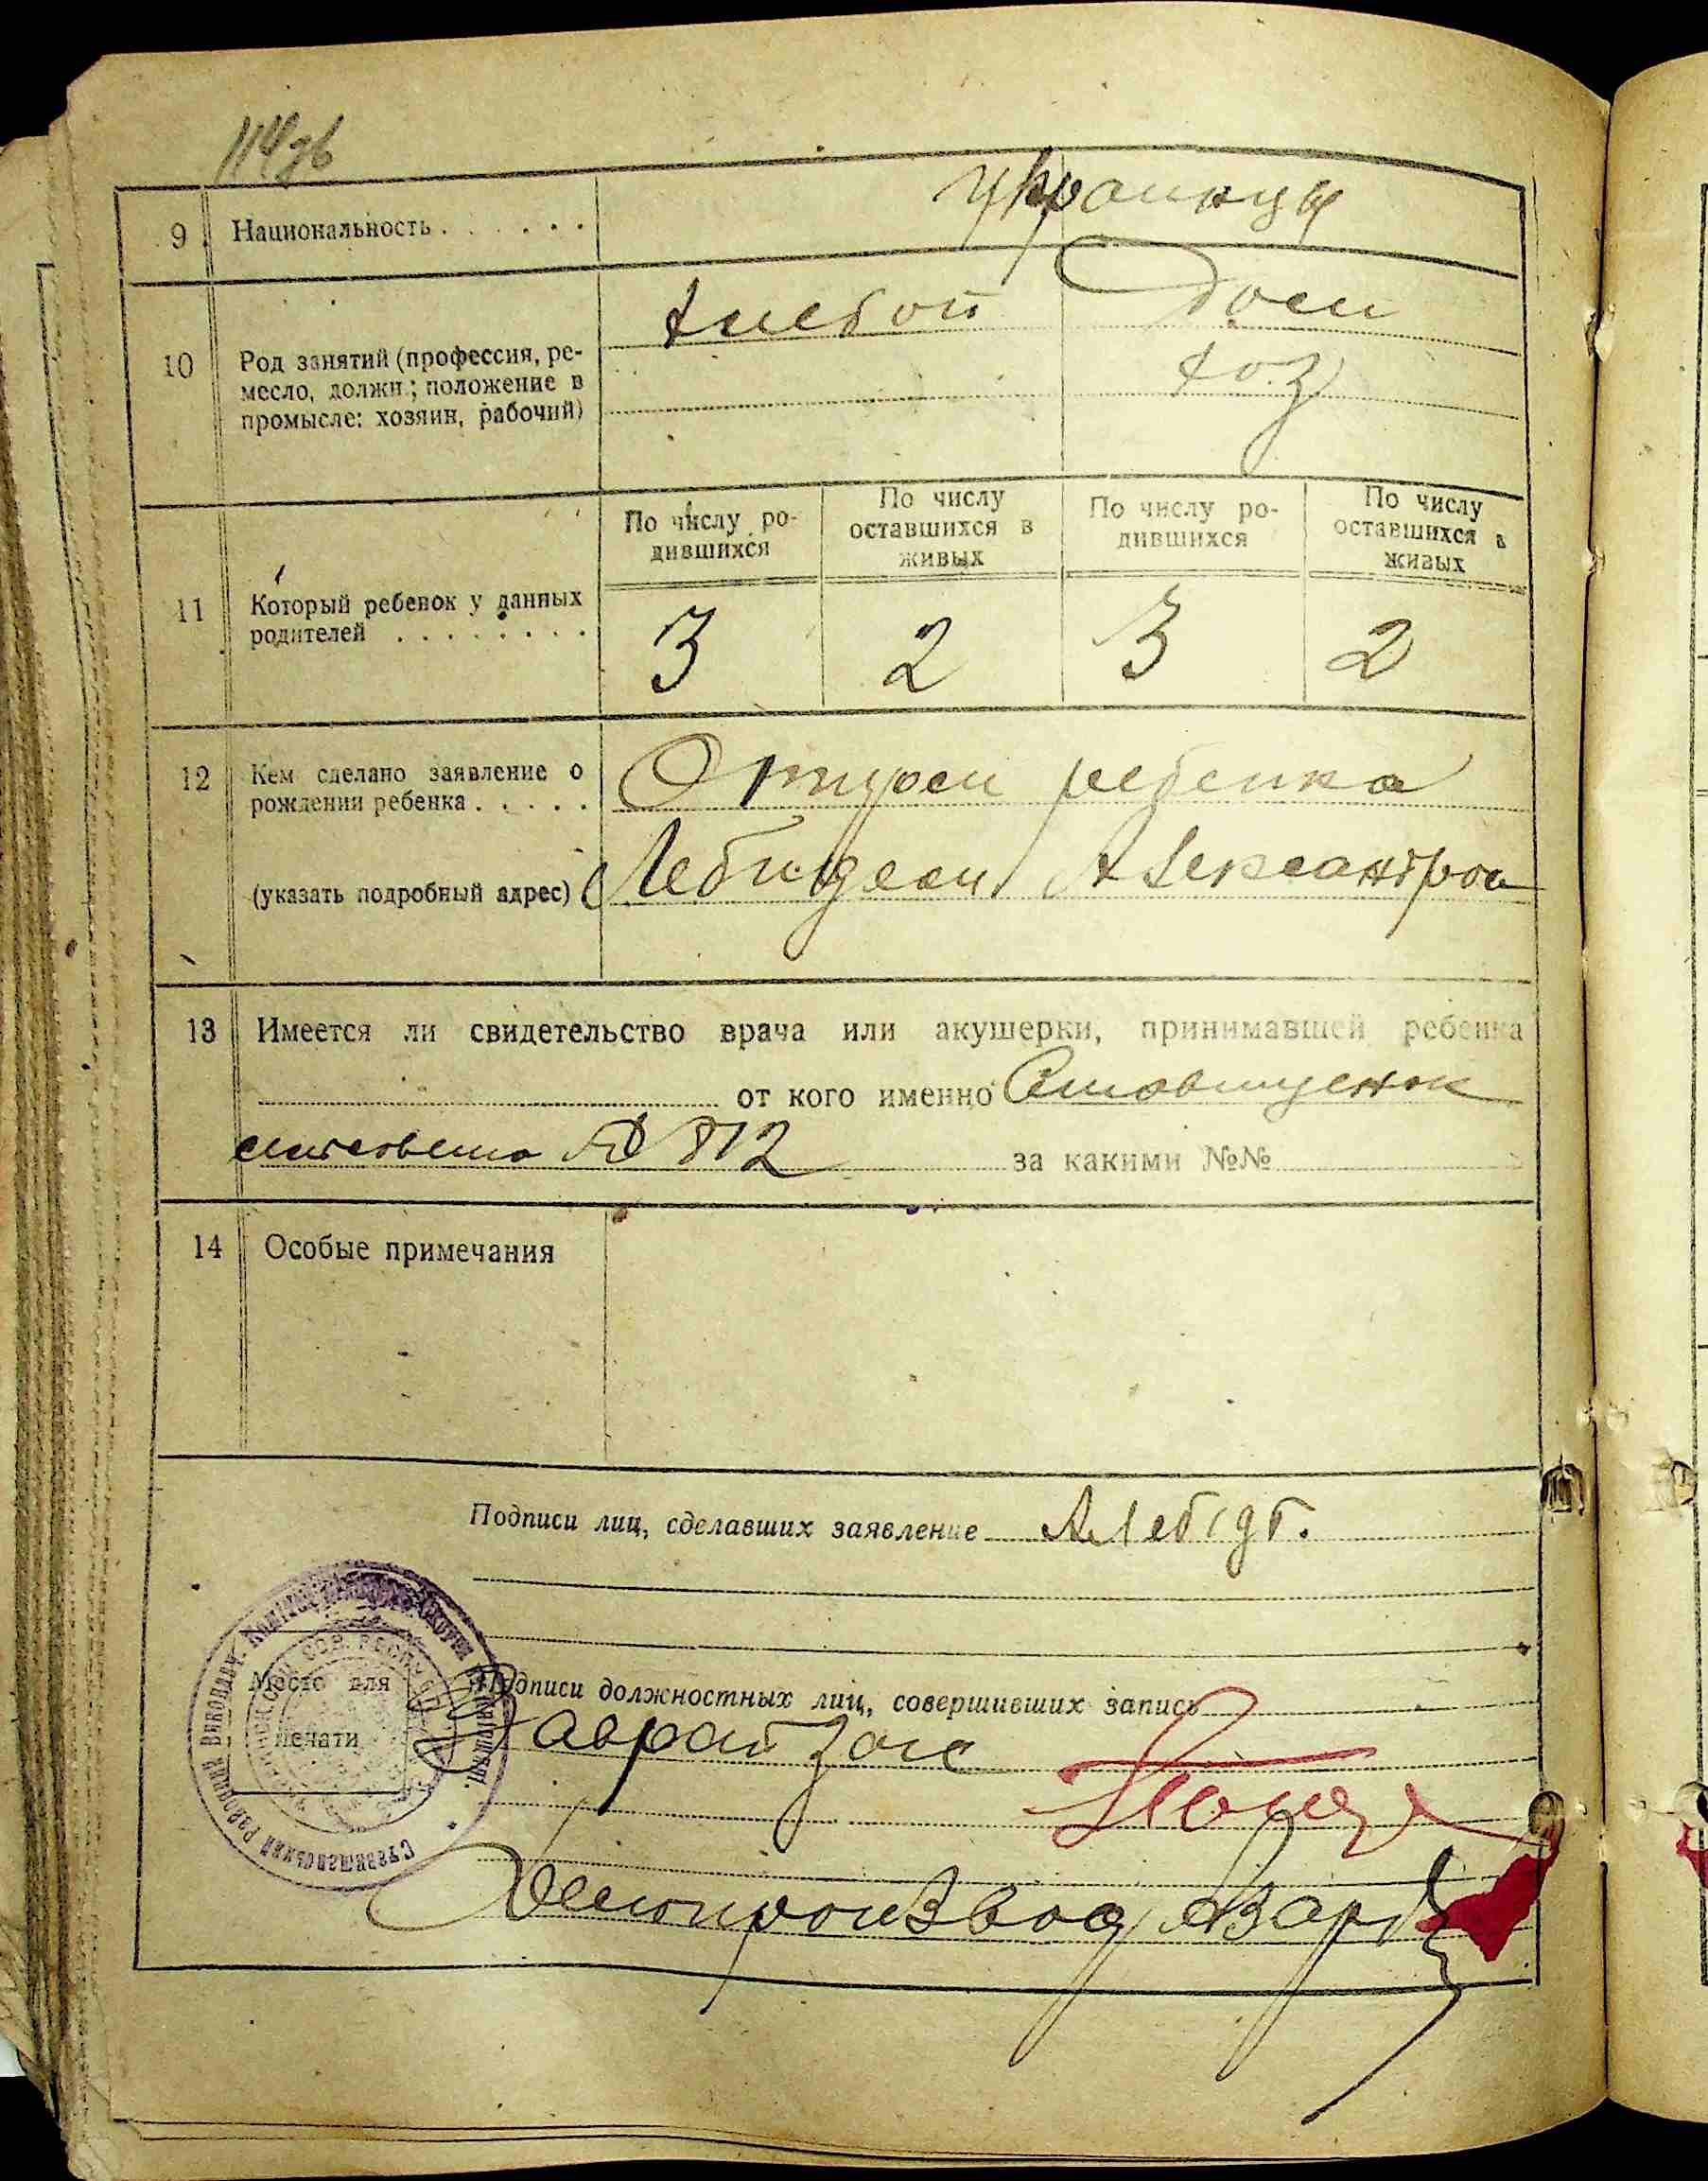 9 Национальность . . . . . . украинцы
10 Род занятий (профессия, ре-
месло, должн.; положение в
промысле: хозяин, рабочий)
хлебоп дом
хоз
11 Который ребенок у данных
родителей . . . . . . . .
По числу ро-
дившихся
По числу
оставшихся в
живых
По числу ро-
дившихся
По числу
оставшихся в
живых
3 2 3 2
12 Кем сделано заявление о
рождении ребенка . . . . .
(указать подробный адрес)
Отцом ребенка
Лебидем Александром
13 Имеется ли свидетельство врача или акушерки, принимавшей ребенка
от кого именно
812 за какими №№
14 Особые примечания
Подписи лиц, сделавших заявление А Лебідь.
Место для
печати
Подписи должностных лиц, совершивших запись
Заврайзагс
Делопроизвод